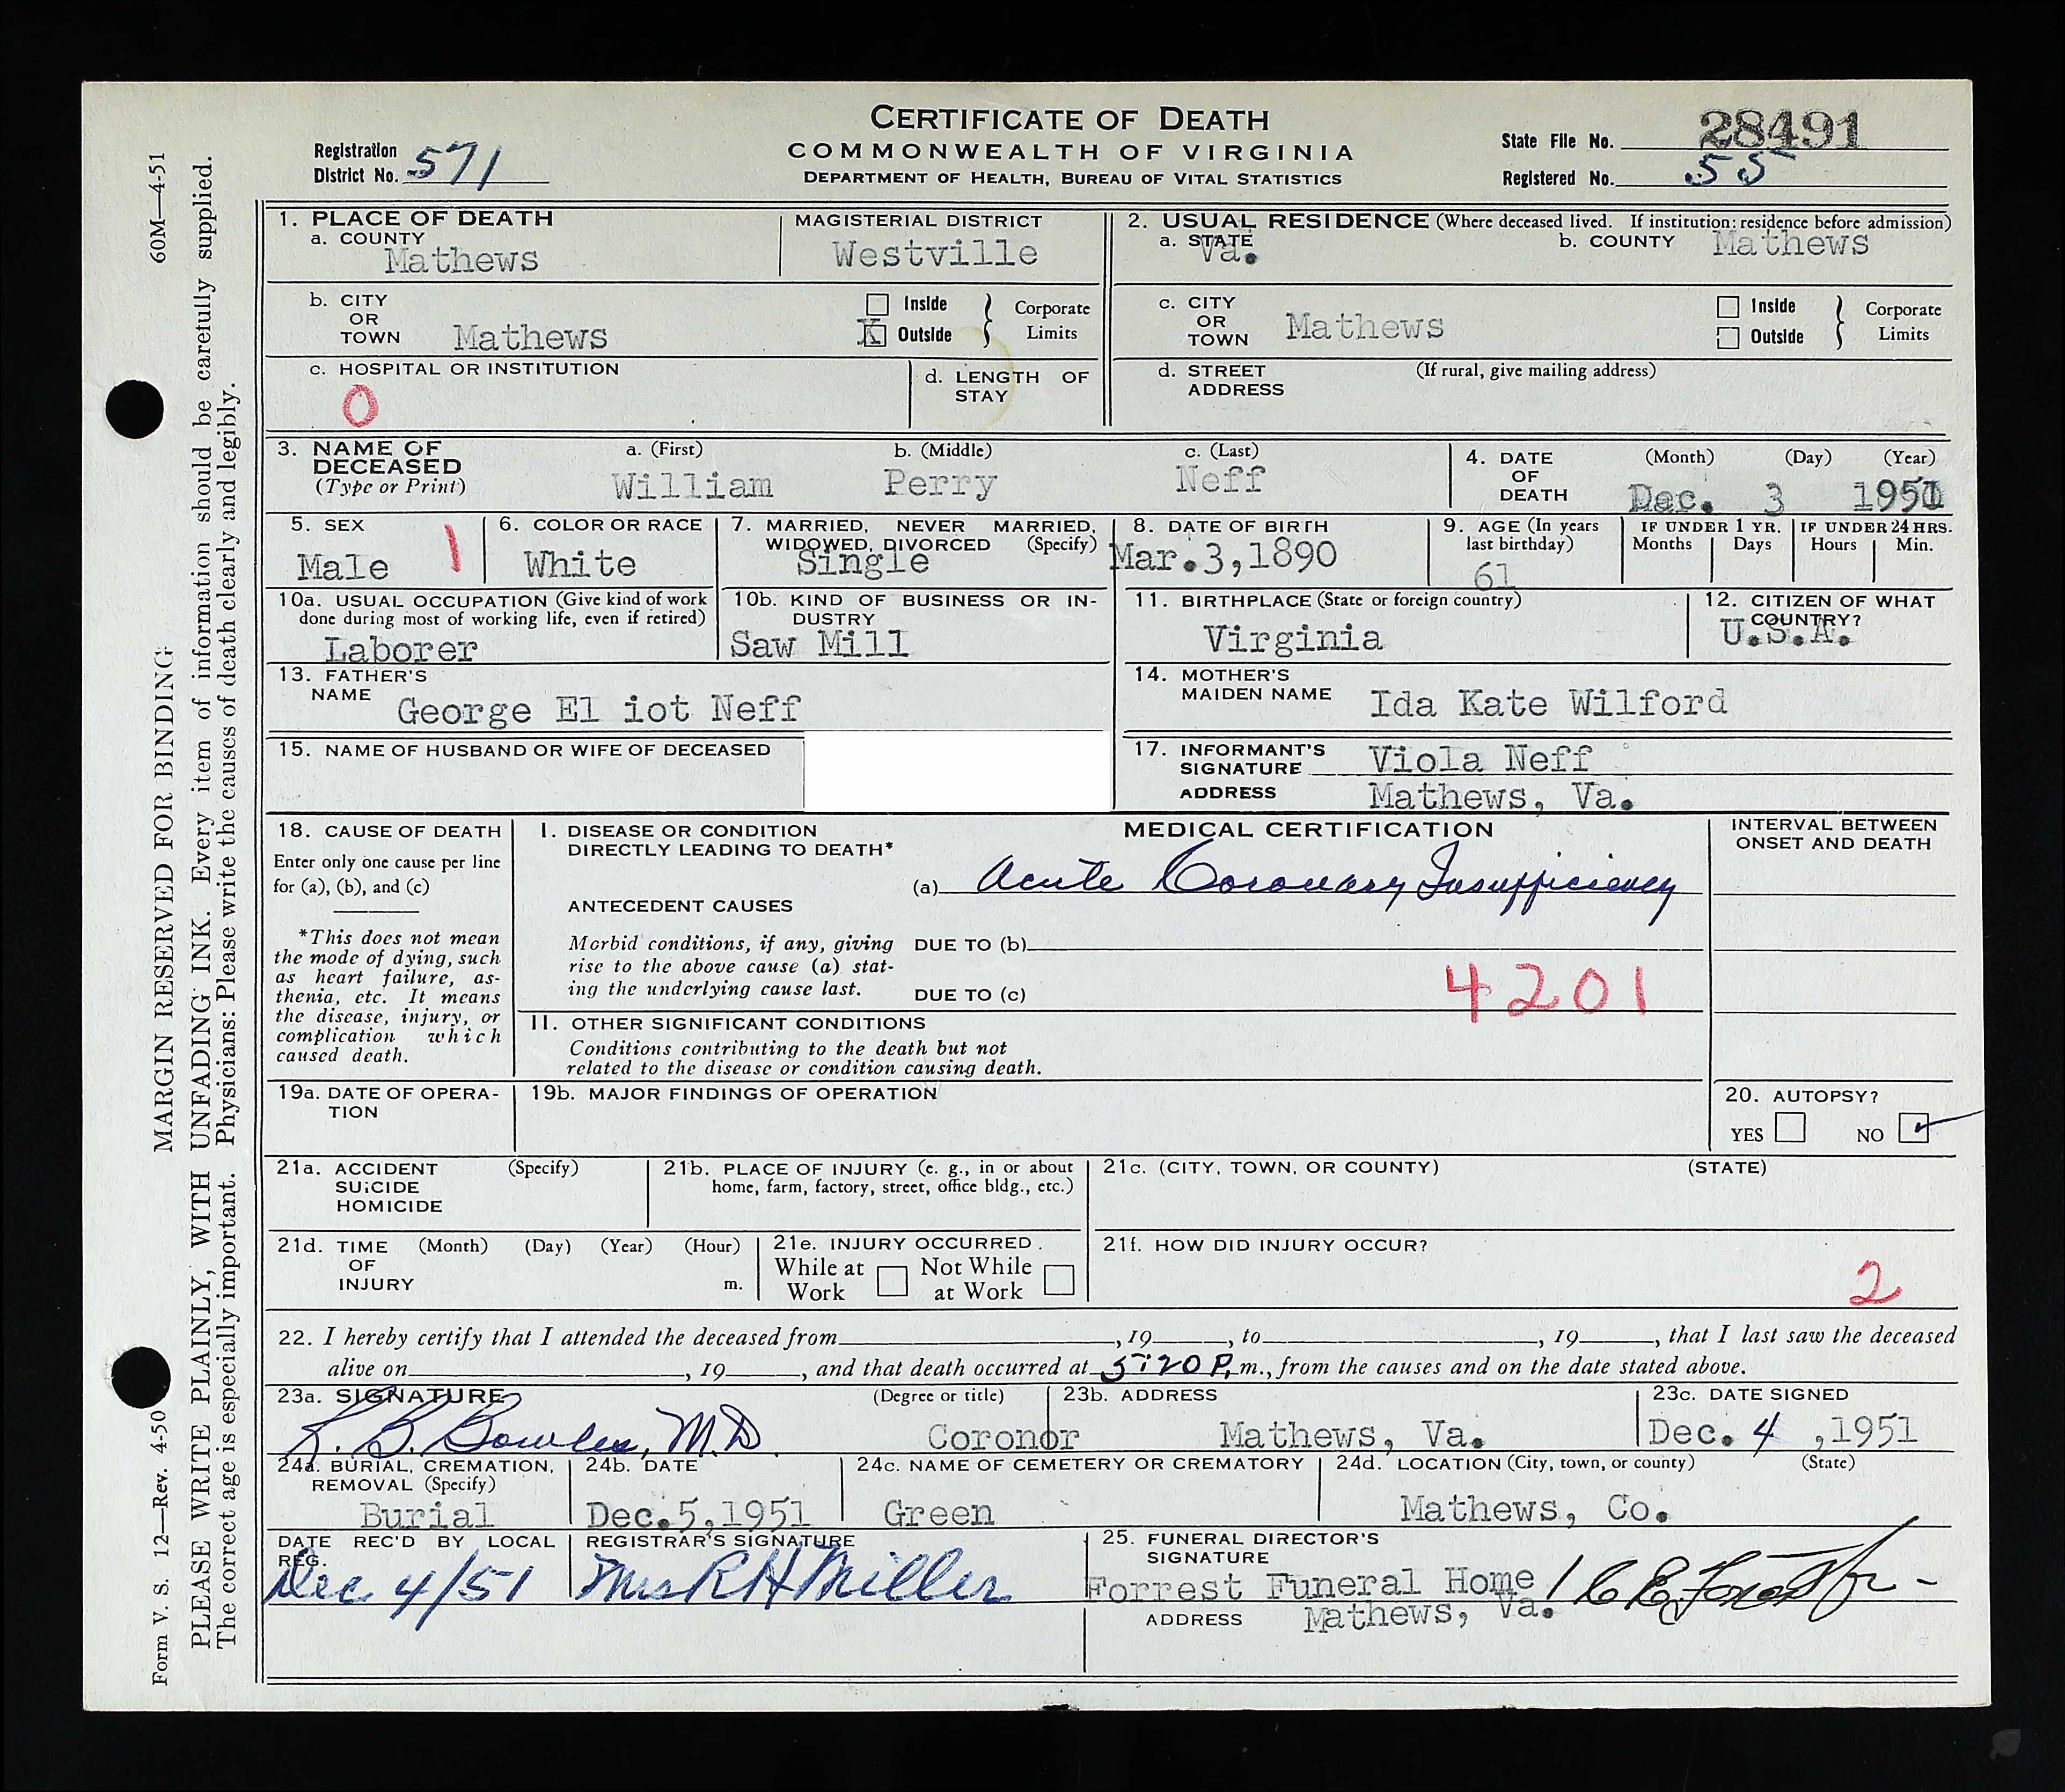 CERTIFICATE OF DEATH
COMMONWEALTH OF VIRGINIA
DEPARTMENT OF HEALTH, BUREAU OF VITAL STATISTICS
Registration
District No. 571
State File No. 28491
Registered No. 55
1. PLACE OF DEATH
a. COUNTY
Mathews
MAGISTERIAL DISTRICT
Westville
2. USUAL RESIDENCE (Where deceased lived. If institution: residence before admission)
a. STATE
Va.
b. COUNTY Mathews
b. CITY
OR
TOWN Mathews
Inside
X Outside
Corporate
Limits
c. CITY
OR
TOWN Mathews
Inside
Outside
Corporate
Limits
c. HOSPITAL OR INSTITUTION
0
d. LENGTH OF
STAY
d. STREET
ADDRESS
(If rural, give mailing address)
3. NAME OF
DECEASED
(Type or Print)
a. (First)
William
b. (Middle)
Perry
c. (Last)
Neff
4. DATE
OF
DEATH
(Month) (Day) (Year)
Dec. 3 1951
5. SEX
Male 1
6. COLOR OR RACE
White
7. MARRIED, NEVER MARRIED,
WIDOWED, DIVORCED (Specify)
Single
8. DATE OF BIRTH
Mar.3,1890
9. AGE (In years
last birthday)
61
IF UNDER 1 YR.
Months Days
IF UNDER 24 HRS.
Hours Min.
10a. USUAL OCCUPATION (Give kind of work
done during most of working life, even if retired)
Laborer
10b. KIND OF BUSINESS OR IN-
DUSTRY
Saw Mill
11. BIRTHPLACE (State or foreign country)
Virginia
12. CITIZEN OF WHAT
COUNTRY?
U.S.A.
13. FATHER'S
NAME George El iot Neff
14. MOTHER'S
MAIDEN NAME Ida Kate Wilford
15. NAME OF HUSBAND OR WIFE OF DECEASED
17. INFORMANT'S
SIGNATURE Viola Neff
ADDRESS Mathews, Va.
18. CAUSE OF DEATH
Enter only one cause per line
for (a), (b), and (c)
*This does not mean
the mode of dying, such
as heart failure, as-
thenia, etc. It means
the disease, injury, or
complication which
caused death.
MEDICAL CERTIFICATION
I. DISEASE OR CONDITION
DIRECTLY LEADING TO DEATH*
(a) Acute Coronary Insufficiency
ANTECEDENT CAUSES
Morbid conditions, if any, giving
rise to the above cause (a) stat-
ing the underlying cause last.
DUE TO (b)
DUE TO (c)
4201
II. OTHER SIGNIFICANT CONDITIONS
Conditions contributing to the death but not
related to the disease or condition causing death.
INTERVAL BETWEEN
ONSET AND DEATH
19a. DATE OF OPERA-
TION
19b. MAJOR FINDINGS OF OPERATION
20. AUTOPSY?
YES NO ✓
21a. ACCIDENT (Specify)
SUICIDE
HOMICIDE
21b. PLACE OF INJURY (e. g., in or about
home, farm, factory, street, office bldg., etc.)
21c. (CITY, TOWN, OR COUNTY) (STATE)
21d. TIME (Month) (Day) (Year) (Hour)
OF
INJURY m.
21e. INJURY OCCURRED
While at
Work
Not While
at Work
21f. HOW DID INJURY OCCUR?
2
22. I hereby certify that I attended the deceased from , 19 , to , 19 , that I last saw the deceased
alive on , 19 , and that death occurred at 5:20 P.m., from the causes and on the date stated above.
23a. SIGNATURE (Degree or title)
K. B. Bowles, M.D. Coronor
23b. ADDRESS
Mathews, Va.
23c. DATE SIGNED
Dec. 4 ,1951
24a. BURIAL, CREMATION,
REMOVAL (Specify)
Burial
24b. DATE
Dec.5,1951
24c. NAME OF CEMETERY OR CREMATORY
Green
24d. LOCATION (City, town, or county) (State)
Mathews, Co.
DATE REC'D BY LOCAL
REG.
Dec 4/51
REGISTRAR'S SIGNATURE
Mrs R H Miller
25. FUNERAL DIRECTOR'S
SIGNATURE
Forrest Funeral Home
ADDRESS Mathews, Va.
60M—4-51
MARGIN RESERVED FOR BINDING
Form V. S. 12—Rev. 4-50
PLEASE WRITE PLAINLY, WITH UNFADING INK. Every item of information should be carefully supplied.
The correct age is especially important. Physicians: Please write the causes of death clearly and legibly.